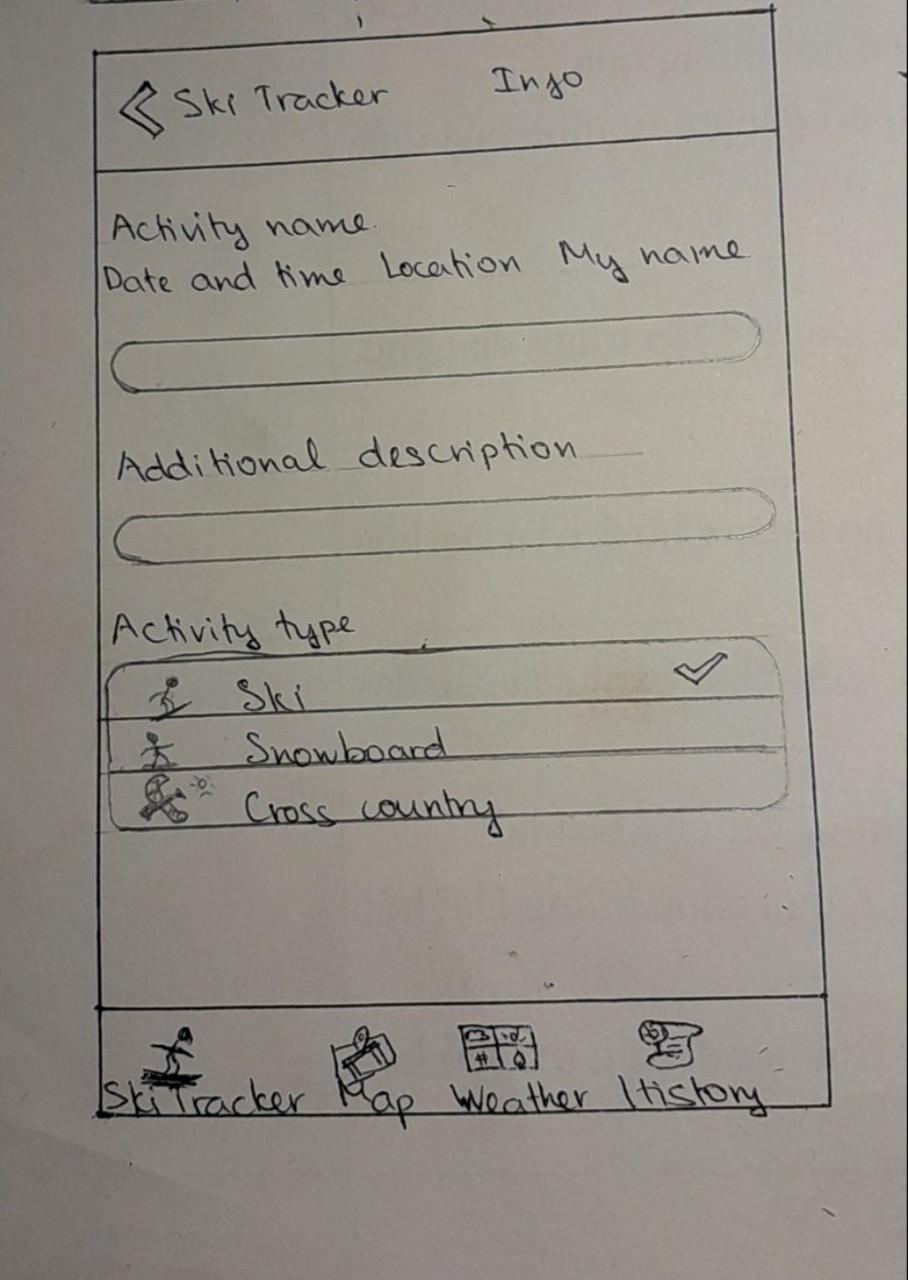 Ski Tracker Info
Activity name
Date and time Location My name
Additional description
Activity type
Ski
Snowboard
Cross country
Ski Tracker Map Weather History